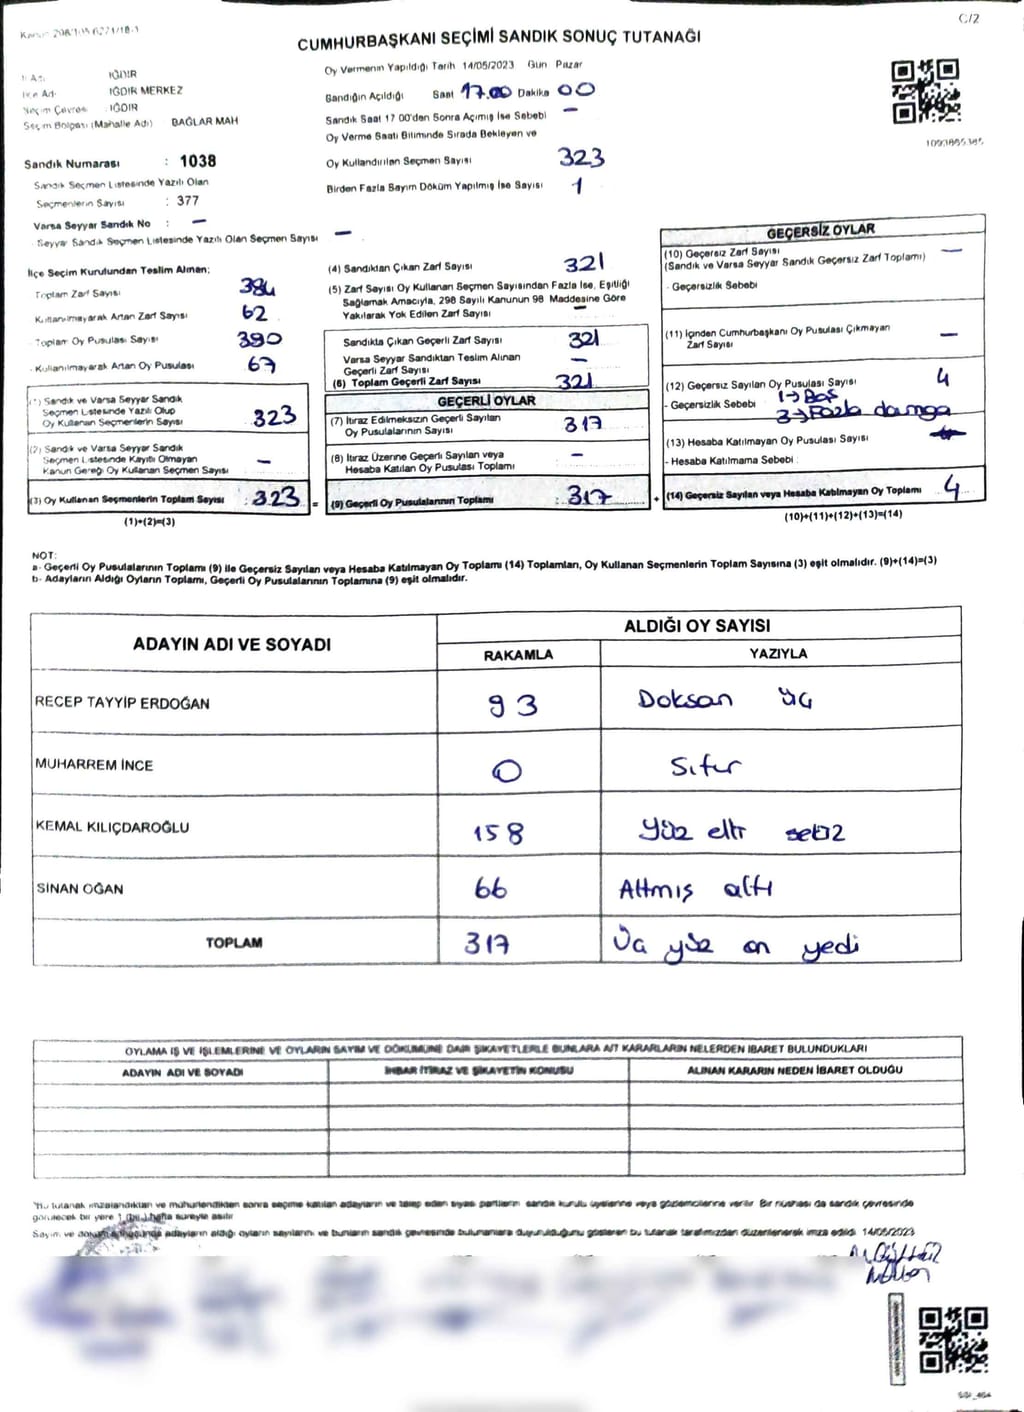 C/2
CUMHURBAŞKANI SEÇİMİ SANDIK SONUÇ TUTANAĞI
IĞDIR
IĞDIR MERKEZ
IĞDIR
Seçim Bölgesi (Mahalle Adı) BAĞLAR MAH
Sandık Numarası : 1038
Sandık Seçmen Listesinde Yazılı Olan
Seçmenlerin Sayısı : 377
Varsa Seyyar Sandık No : –
Seyyar Sandık Seçmen Listesinde Yazılı Olan Seçmen Sayısı –
Oy Vermenin Yapıldığı Tarih 14/05/2023 Gün Pazar
Sandığın Açıldığı Saat 17.00 Dakika 00
Sandık Saat 17 00'den Sonra Açımış İse Sebebi –
Oy Verme Saati Bitiminde Sırada Bekleyen ve
Oy Kullandırılan Seçmen Sayısı 323
Birden Fazla Sayım Döküm Yapılmış İse Sayısı 1
İlçe Seçim Kurulundan Teslim Alınan;
Toplam Zarf Sayısı 384
Kullanılmayarak Artan Zarf Sayısı 62
Toplam Oy Pusulası Sayısı 390
Kullanılmayarak Artan Oy Pusulası 67
(1) Sandık ve Varsa Seyyar Sandık
Seçmen Listesinde Yazılı Olup
Oy Kullanan Seçmenlerin Sayısı 323
(2) Sandık ve Varsa Seyyar Sandık
Seçmen Listesinde Kayıtlı Olmayan
Kanun Gereği Oy Kullanan Seçmen Sayısı –
(3) Oy Kullanan Seçmenlerin Toplam Sayısı : 323 =
(1)+(2)=(3)
(4) Sandıktan Çıkan Zarf Sayısı 321
(5) Zarf Sayısı Oy Kullanan Seçmen Sayısından Fazla İse, Eşitliği
Sağlamak Amacıyla, 298 Sayılı Kanunun 98 Maddesine Göre
Yakılarak Yok Edilen Zarf Sayısı –
Sandıkta Çıkan Geçerli Zarf Sayısı 321
Varsa Seyyar Sandıktan Teslim Alınan
Geçerli Zarf Sayısı –
(6) Toplam Geçerli Zarf Sayısı 321
GEÇERLİ OYLAR
(7) İtiraz Edilmeksizin Geçerli Sayılan
Oy Pusulalarının Sayısı 317
(8) İtiraz Üzerine Geçerli Sayılan veya
Hesaba Katılan Oy Pusulası Toplamı –
(9) Geçerli Oy Pusulalarının Toplamı : 317 +
GEÇERSİZ OYLAR
(10) Geçersiz Zarf Sayısı –
(Sandık ve Varsa Seyyar Sandık Geçersiz Zarf Toplamı)
- Geçersizlik Sebebi
(11) İçinden Cumhurbaşkanı Oy Pusulası Çıkmayan
Zarf Sayısı –
(12) Geçersiz Sayılan Oy Pusulası Sayısı 4
- Geçersizlik Sebebi 1→Boş
3→Fazla damga
(13) Hesaba Katılmayan Oy Pusulası Sayısı
- Hesaba Katılmama Sebebi
(14) Geçersiz Sayılan veya Hesaba Katılmayan Oy Toplamı 4
(10)+(11)+(12)+(13)=(14)
NOT:
a- Geçerli Oy Pusulalarının Toplamı (9) ile Geçersiz Sayılan veya Hesaba Katılmayan Oy Toplamı (14) Toplamları, Oy Kullanan Seçmenlerin Toplam Sayısına (3) eşit olmalıdır. (9)+(14)=(3)
b- Adayların Aldığı Oyların Toplamı, Geçerli Oy Pusulalarının Toplamına (9) eşit olmalıdır.
ADAYIN ADI VE SOYADI ALDIĞI OY SAYISI
RAKAMLA YAZIYLA
RECEP TAYYİP ERDOĞAN 93 Doksan üç
MUHARREM İNCE 0 Sıfır
KEMAL KILIÇDAROĞLU 158 Yüz elli sekiz
SİNAN OĞAN 66 Altmış altı
TOPLAM 317 Üç yüz on yedi
OYLAMA İŞ VE İŞLEMLERİNE VE OYLARIN SAYIM VE DÖKÜMÜNE DAİR ŞİKAYETLERLE BUNLARA AİT KARARLARIN NELERDEN İBARET BULUNDUKLARI
ADAYIN ADI VE SOYADI İHBAR İTİRAZ VE ŞİKAYETİN KONUSU ALINAN KARARIN NEDEN İBARET OLDUĞU
Bu tutanak imzalandıktan ve mühürlendikten sonra seçime katılan adayların ve talep eden siyasi partilerin sandık kurulu üyelerine veya gözlemcilerine verilir Bir nüshası da sandık çevresinde
görülecek bir yere 1 (bir) hafta süreyle asılır
Sayım ve adayların aldığı oyların sayılarını ve bunların sandık çevresinde bulunanlara duyurulduğunu gösteren bu tutanak tarafımızdan düzenlenerek imza edildi 14/05/2023